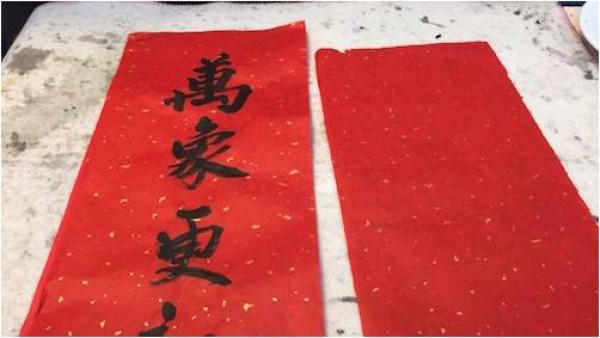 萬象更